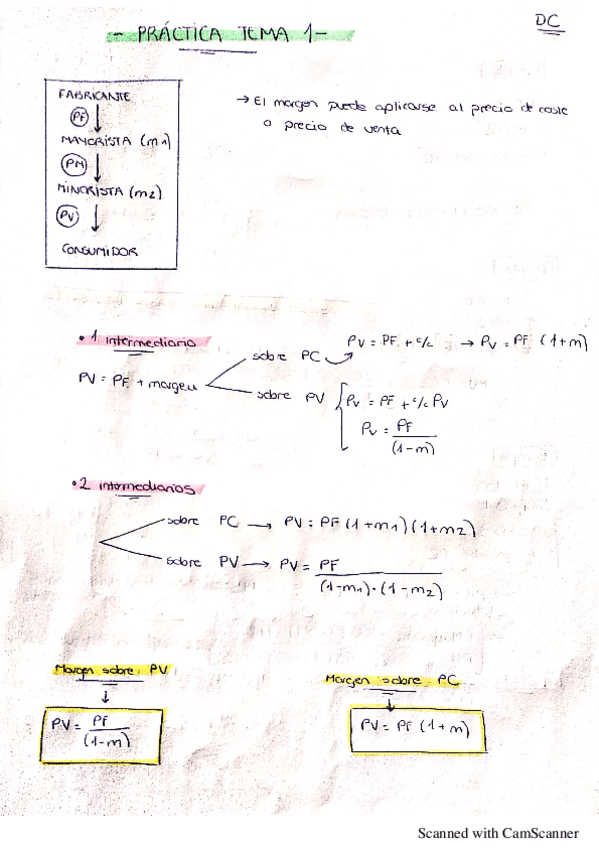 DC
- PRÁCTICA TEMA 1-
FABRICANTE
PF
MAYORISTA (m1)
PM
MINORISTA (m2)
PV
CONSUMIDOR
→ El margen puede aplicarse al precio de coste
o precio de venta
• 1 intermediario
PV = PF + margen
sobre PC
PV = PF + % → PV = PF (1+m)
sobre PV
PV = PF + % PV
PV = PF / (1-m)
• 2 intermediarios
sobre PC → PV = PF (1+m1)(1+m2)
sobre PV → PV = PF / (1-m1)·(1-m2)
Margen sobre PV
↓
PV = PF / (1-m)
Margen sobre PC
↓
PV = PF (1+m)
Scanned with CamScanner